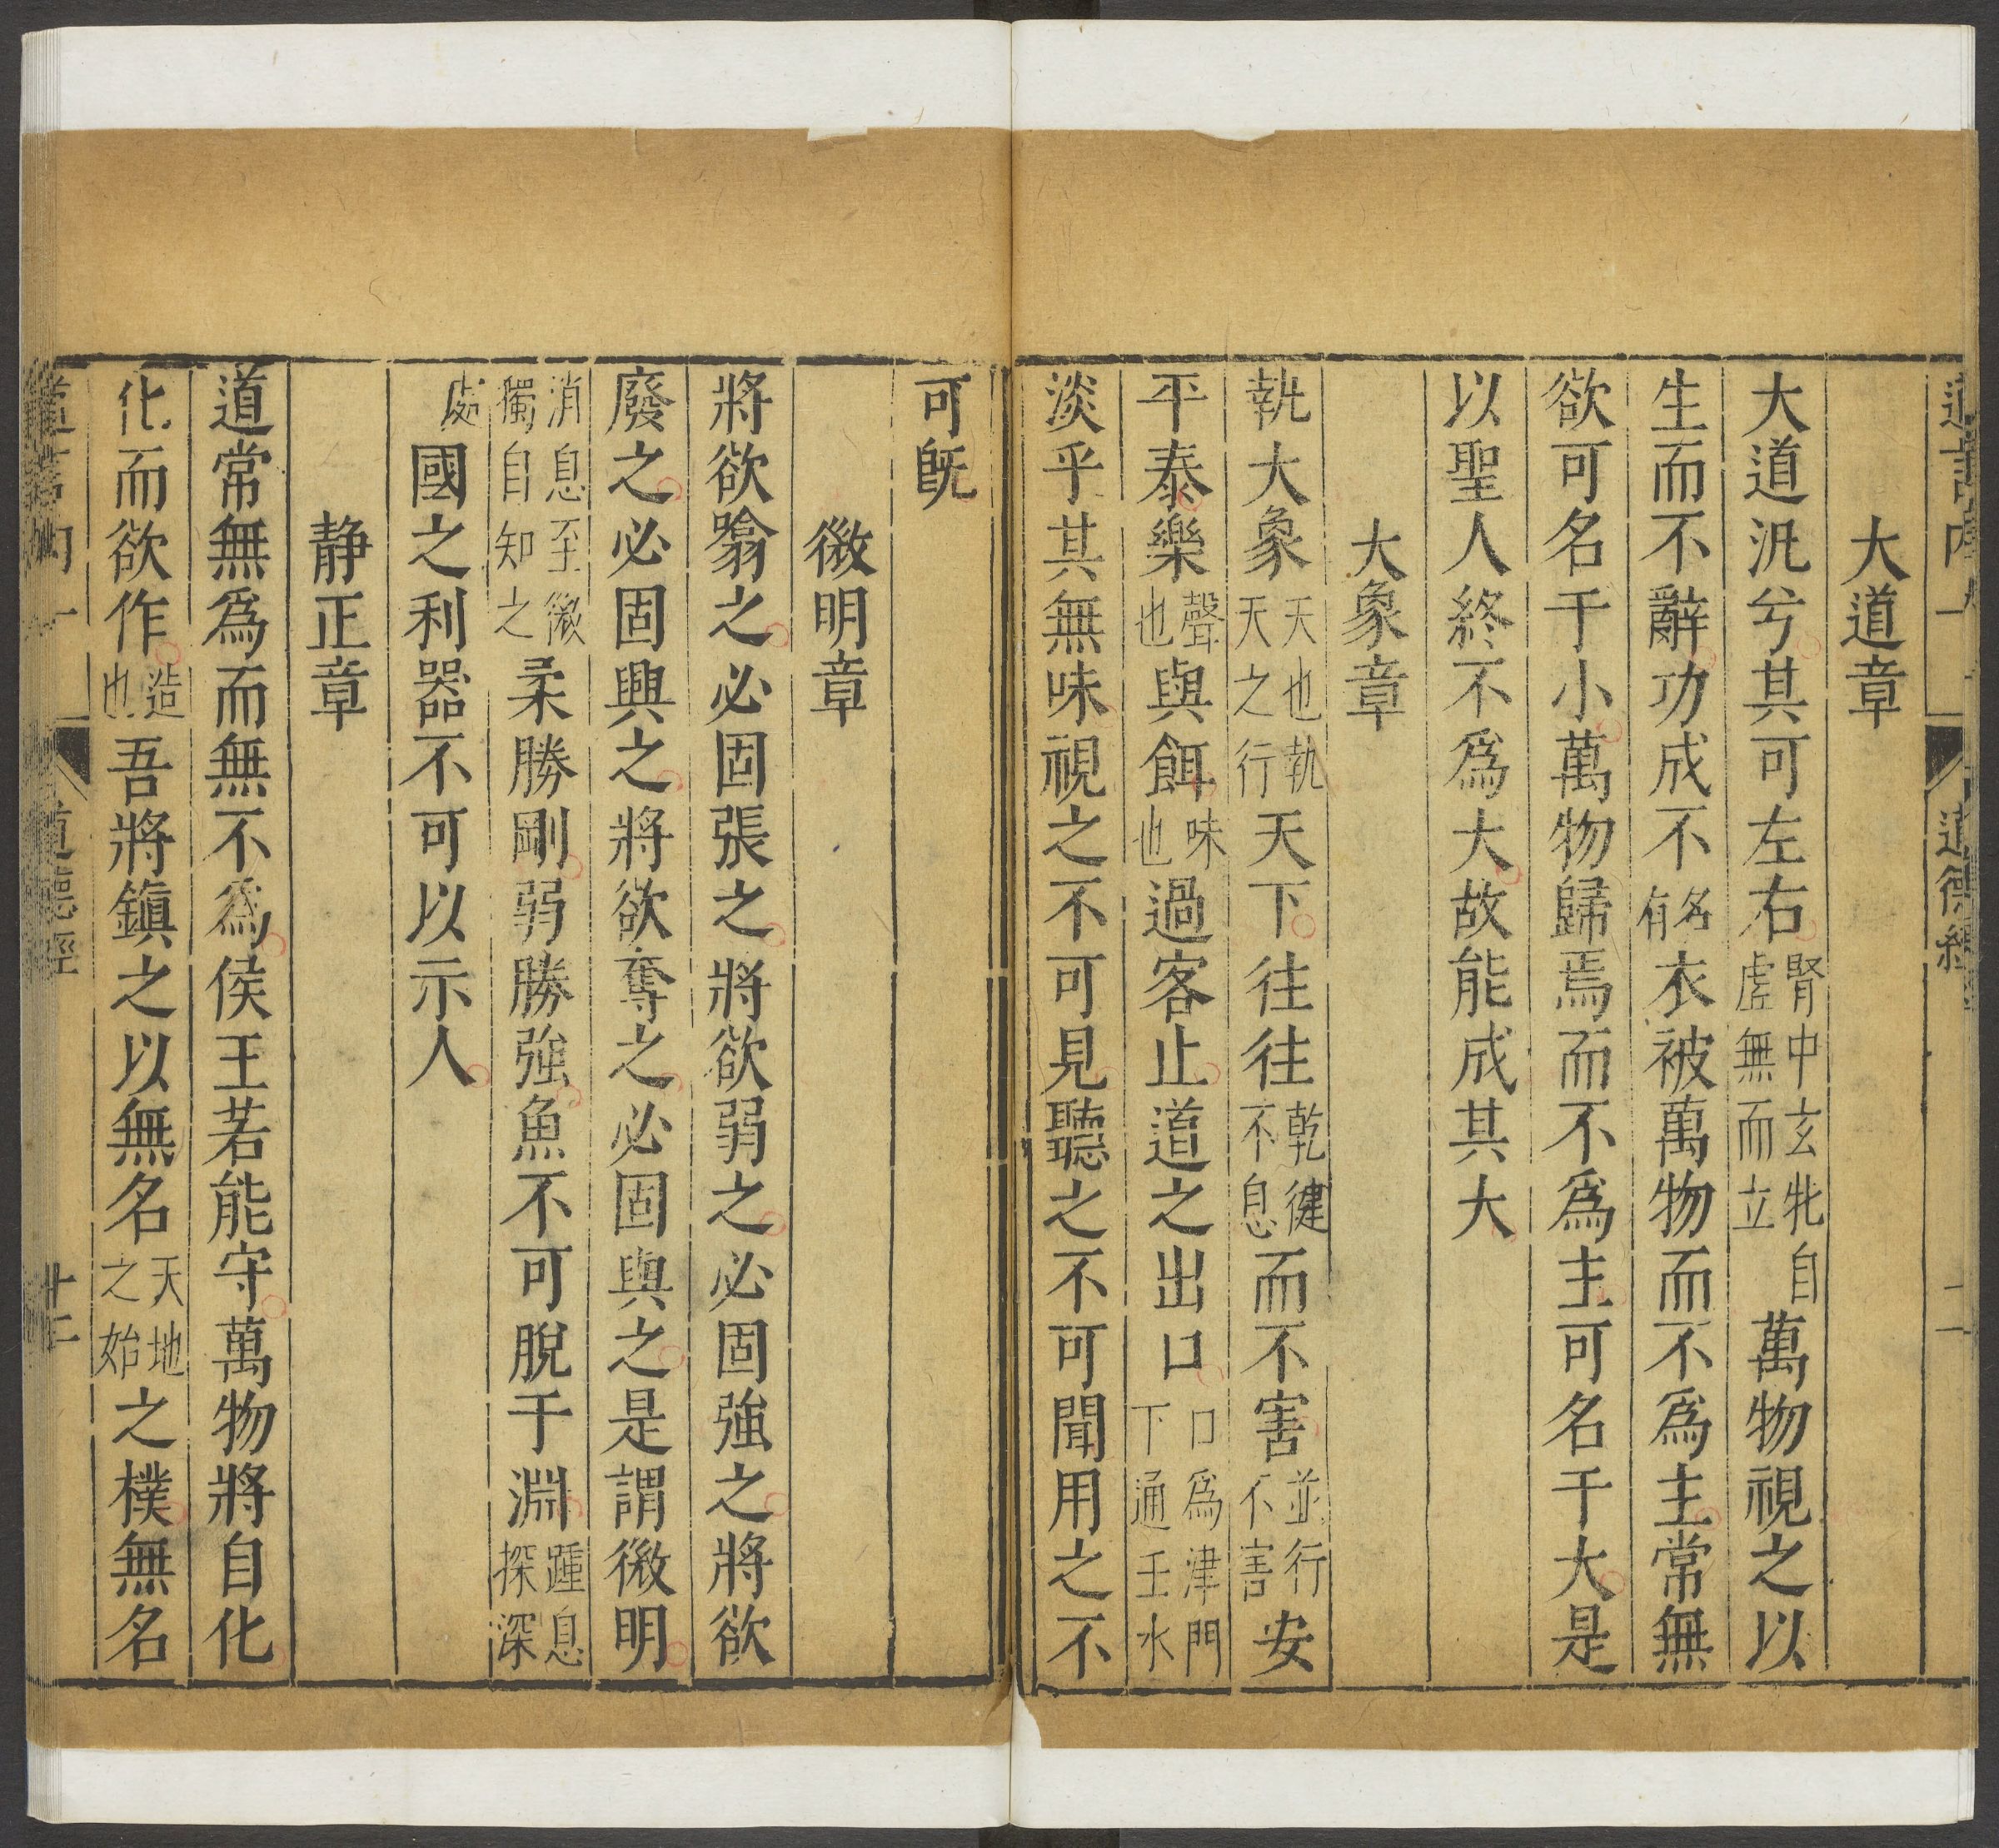 大道章
大道汎兮其可左右腎中玄牝自虛無而立萬物視之以
生而不辭功成不名有衣被萬物而不爲主常無
欲可名于小萬物歸焉而不爲主可名于大是
以聖人終不爲大故能成其大
大象章
執大象天也執天之行天下往往乾健不息而不害並行不害安
平泰樂聲也與餌味也過客止道之出口口爲津門下通壬水
淡乎其無味視之不可見聽之不可聞用之不
可旣
微明章
將欲翕之必固張之將欲弱之必固強之將欲
廢之必固興之將欲奪之必固與之是謂微明
消息至微獨自知之柔勝剛弱勝強魚不可脫于淵踵息探深
處國之利器不可以示人
静正章
道常無爲而無不爲侯王若能守萬物將自化
化而欲作造也吾將鎮之以無名天地之始之樸無名
道德經